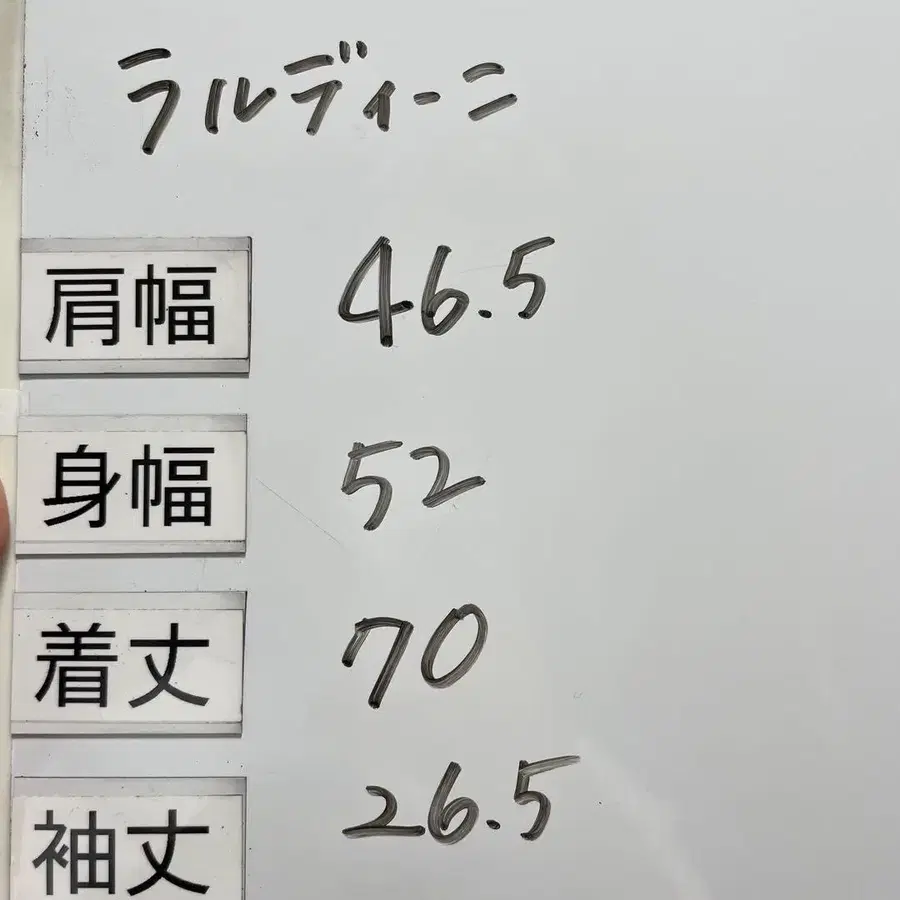 ラルディーニ
肩幅 46.5
身幅 52
着丈 70
袖丈 26.5